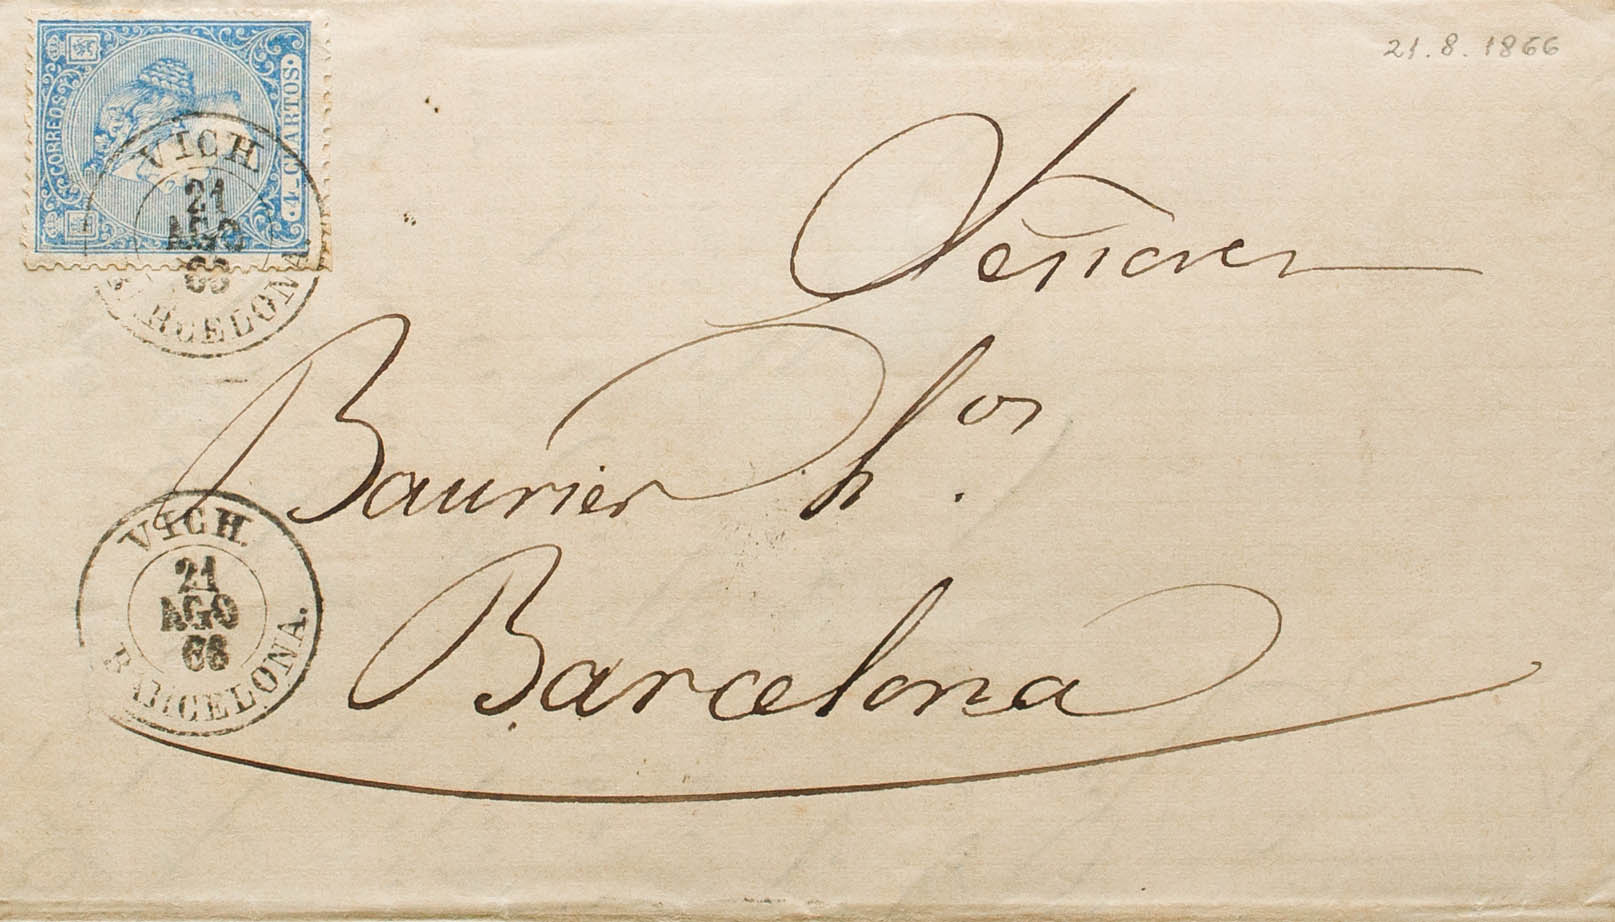 21.8.1866
CORREOS
4 CUARTOS
VICH.
21
AGO
66
BARCELONA.
Señores
Baurier h.os
VICH.
21
AGO
66
BARCELONA.
Barcelona